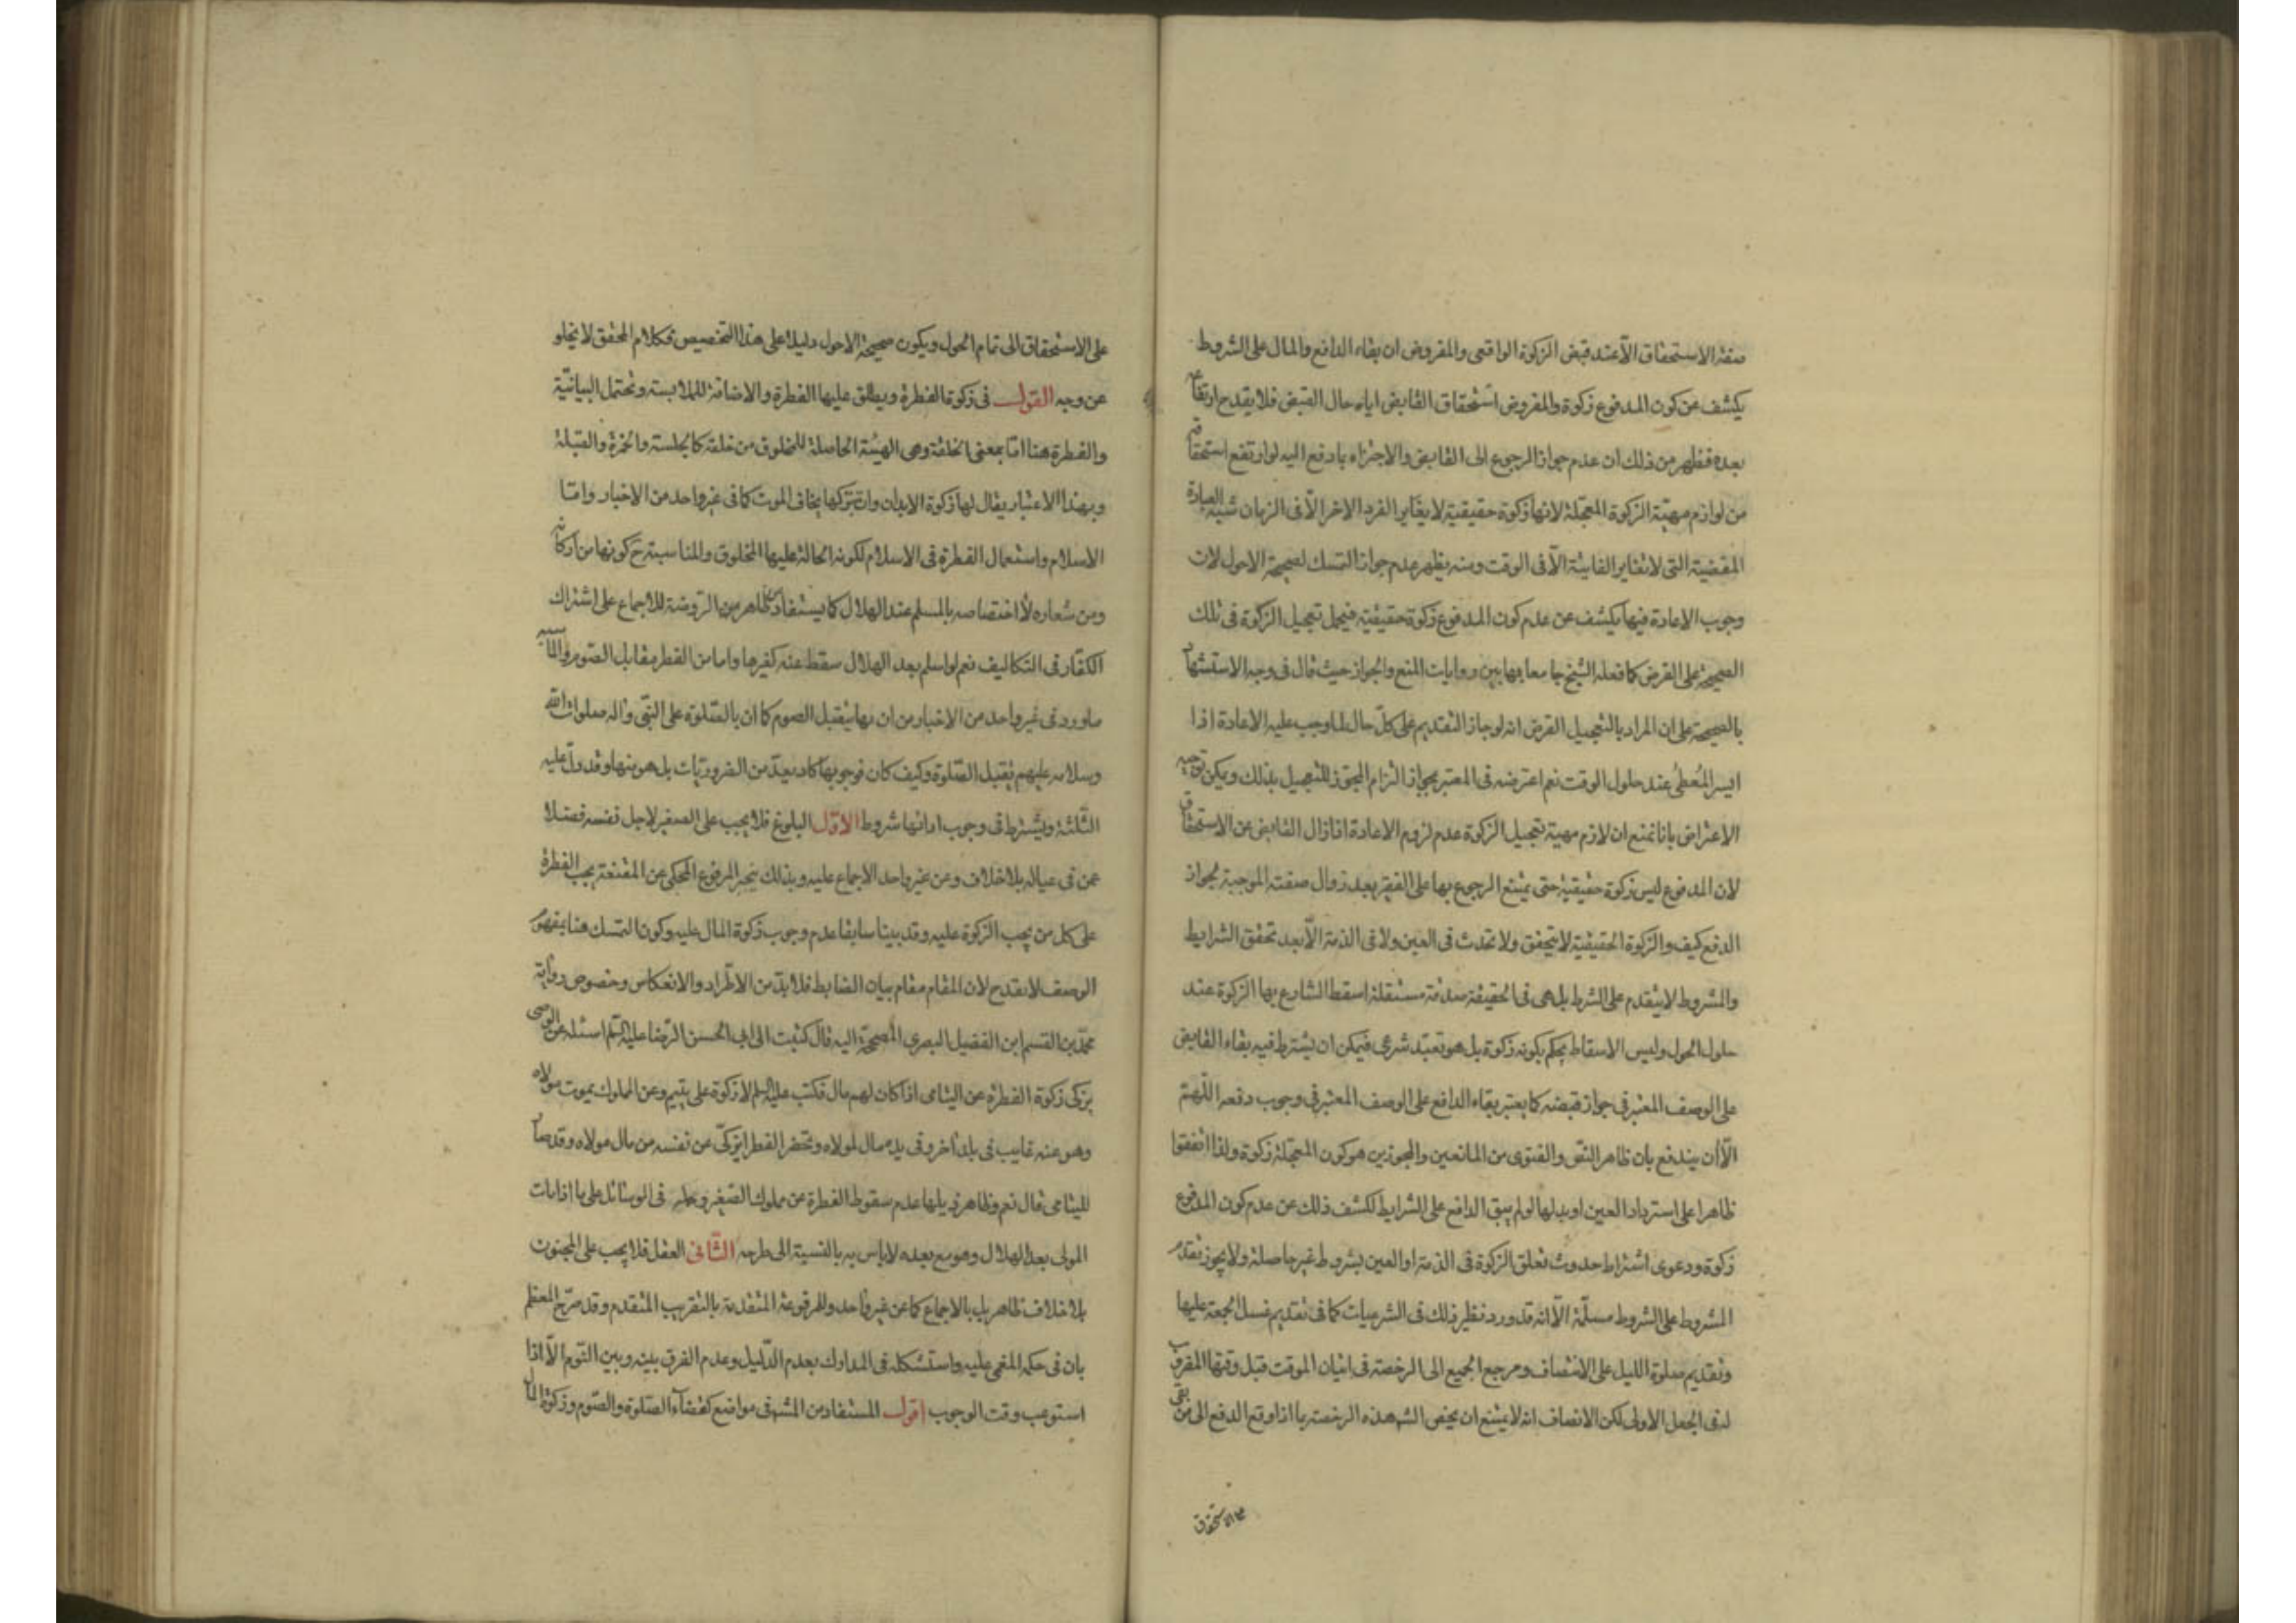 صفة الاستحقاق الّا عند قبض الزكوة الواقعى والمفروض ان بقاء الدافع والمال على الشروط
يكشف عن كون المدفوع زكوة والمفروض استحقاق القابض اياه حال القبض فلا يقدح ارتفاعه
بعده فظهر من ذلك ان عدم جواز الرجوع الى القابض والاجتزاء بما دفع اليه لو ارتفع استحقاقه
من لوازم مهيّة الزكوة المعجّلة لانها زكوة حقيقية لا يغاير الفرد الاخر الّا فى الزمان شبه العبادة
المقضية التى لا تغاير الفايتة الّا فى الوقت ومنه يظهر عدم جواز التمسك لصحيحة الاحول لان
وجوب الاعادة فيها يكشف عن عدم كون المدفوع زكوة حقيقية فيحمل تعجيل الزكوة فى تلك
الصحيحة على القرض كما فعله الشيخ جامعا بها بين روايات المنع والجواز حيث قال فى وجه الاستشهاد
بالصحيحة على ان المراد بالتعجيل القرض انه لو جاز التقديم على كلّ حال لما وجب عليه الاعادة اذا
ايسر المُعطىٰ عند حلول الوقت نعم اعترضه فى المعتبر بجواز التزام المجوّز للتعجيل بذلك ويمكن توجيه
الاعتراض بانا نمنع ان لازم مهية تعجيل الزكوة عدم لزوم الاعادة اذا زال القابض عن الاستحقاق
لان المدفوع ليس زكوة حقيقية حتى يمتنع الرجوع بها على الفقير بعد زوال صفته الموجبة لجواز
الدفع كيف والزكوة الحقيقية لا يتحقق ولا تحدث فى العين ولا فى الذمة الّا بعد تحقق الشرايط
والمشروط لا يتقدم على الشرط بل هى فى الحقيقة صدقة مستقلة اسقط الشارع بها الزكوة عند
حلول الحول وليس الاسقاط بحكم بكونه زكوة بل هو تعبّد شرعى فيمكن ان يشترط فيه بقاء القابض
على الوصف المعتبر فى جواز قبضه كما يعتبر بقاء الدافع على الوصف المعتبر فى وجوب دفعه اللّهمّ
الّا ان يندفع بان ظاهر النصّ والفتوى من المانعين والمجوزين هو كون المعجّلة زكوة ولذا اتفقوا
ظاهرا على استرداد العين او بدلها لو لم يبق الدافع على الشرايط لكشف ذلك عن عدم كون المدفوع
زكوة ودعوى اشتراط حدوث تعلق الزكوة فى الذمة او العين بشروط غير حاصلة ولا يجوز تقدم
المشروط على الشروط مسلّمة الّا انه قد ورد نظير ذلك فى الشرعيات كما فى تقديم غسل الجمعة عليها
وتقديم صلوة الليل على الانتصاف ومرجع الجميع الى الرخصة فى اتيان الموقت قبل وقتها المفروض
لدى الجعل الاولى لكن الانصاف انه لا يمتنع ان يخص الشـ هذه الرخصة بما اذا وقع الدفع الى من بقى
على الاستحقاق
على الاستحقاق الى تمام الحول ويكون صحيحة الاحول دليلا على هذا التخصيص فكلام المحقق لا يخلو
عن وجه القول فى زكوة الفطرة ويطلق عليها الفطرة والاضافة للملابسة وتحتمل البيانيّة
والفطرة هنا امّا بمعنى الخلقة وهى الهيئة الحاصلة للمخلوق من خلقه كالجلسة والخمرة والقبلة
وبهذا الاعتبار يقال لها زكوة الابدان وان بتركها يخاف الموت كما فى غير واحد من الاخبار وامّا
الاسلام واستعمال الفطرة فى الاسلام لكونه الحالة عليها المخلوق والمناسبة ح كونها من اركانه
ومن شعاره لا اختصاصه بالمسلم عند الهلال كما يستفاد عن ظاهر من الرّوضة للاجماع على اشتراك
الكفّار فى التكاليف نعم لو اسلم بعد الهلال سقط عنه كغيرها واما من الفطر مقابل الصّوم والمناسبة
ما ورد فى غير واحد من الاخبار من ان بها يقبل الصوم كما ان بالصّلوة على النبّى واله صلوات الله
وسلامه عليهم يقبل الصّلوة وكيف كان فوجوبها كاد يعدّ من الضروريّات بل هو منها وقد دلّ عليه
الثّلثة ويشترط فى وجوب ادائها شروط الاوّل البلوغ فلا يجب على الصغير لاجل نفسه فضلا
عمن فى عياله بلا خلاف وعن غير واحد الاجماع عليه وبذلك ينجبر المرفوع المحكى عن المقنعة يجب الفطرة
على كل من يجب الزّكوة عليه وقد بينا سابقا عدم وجوب زكوة المال عليه وكون التمسك هنا بمفهوم
الوصف لا يقدح لان المقام مقام بيان الضابط فلا بدّ من الاطّراد والانعكاس وخصوص رواية
محمّد بن القسم ابن الفضيل البصرى المصحّحة اليه قال كتبت الى ابى الحسن الرّضا عليه السّلم اسئله عن الوصى
يزكى زكوة الفطرة عن اليتامى اذا كان لهم مال فكتب عليه السلم لا زكوة على يتيم وعن المملوك يموت مولاه
وهو عنه غايب فى بلد اخر وفى يده مال لمولاه وتحضر الفطر ايزكىّ عن نفسه من مال مولاه وقد صار
لليتامى قال نعم وظاهر ذيلها عدم سقوط الفطرة عن مملوك الصّغير وحمله فى الوسائل على ما اذا مات
المولى بعد الهلال وهو مع بعده لا باس به بالنسبة الى طرحه الثّانى العقل فلا يجب على المجنون
بلا خلاف ظاهر بل بالاجماع كما عن غير واحد وللمرفوعة المتقدمة بالتقريب المتقدم وقد صرّح المعظم
بان فى حكمه المغمى عليه واستشكله فى المدارك بعدم الدّليل وعدم الفرق بينه وبين النّوم الّا اذا
استوعب وقت الوجوب اقول المستفاد من المشـ فى مواضع كقضاء الصّلوة والصّوم وزكوة المال